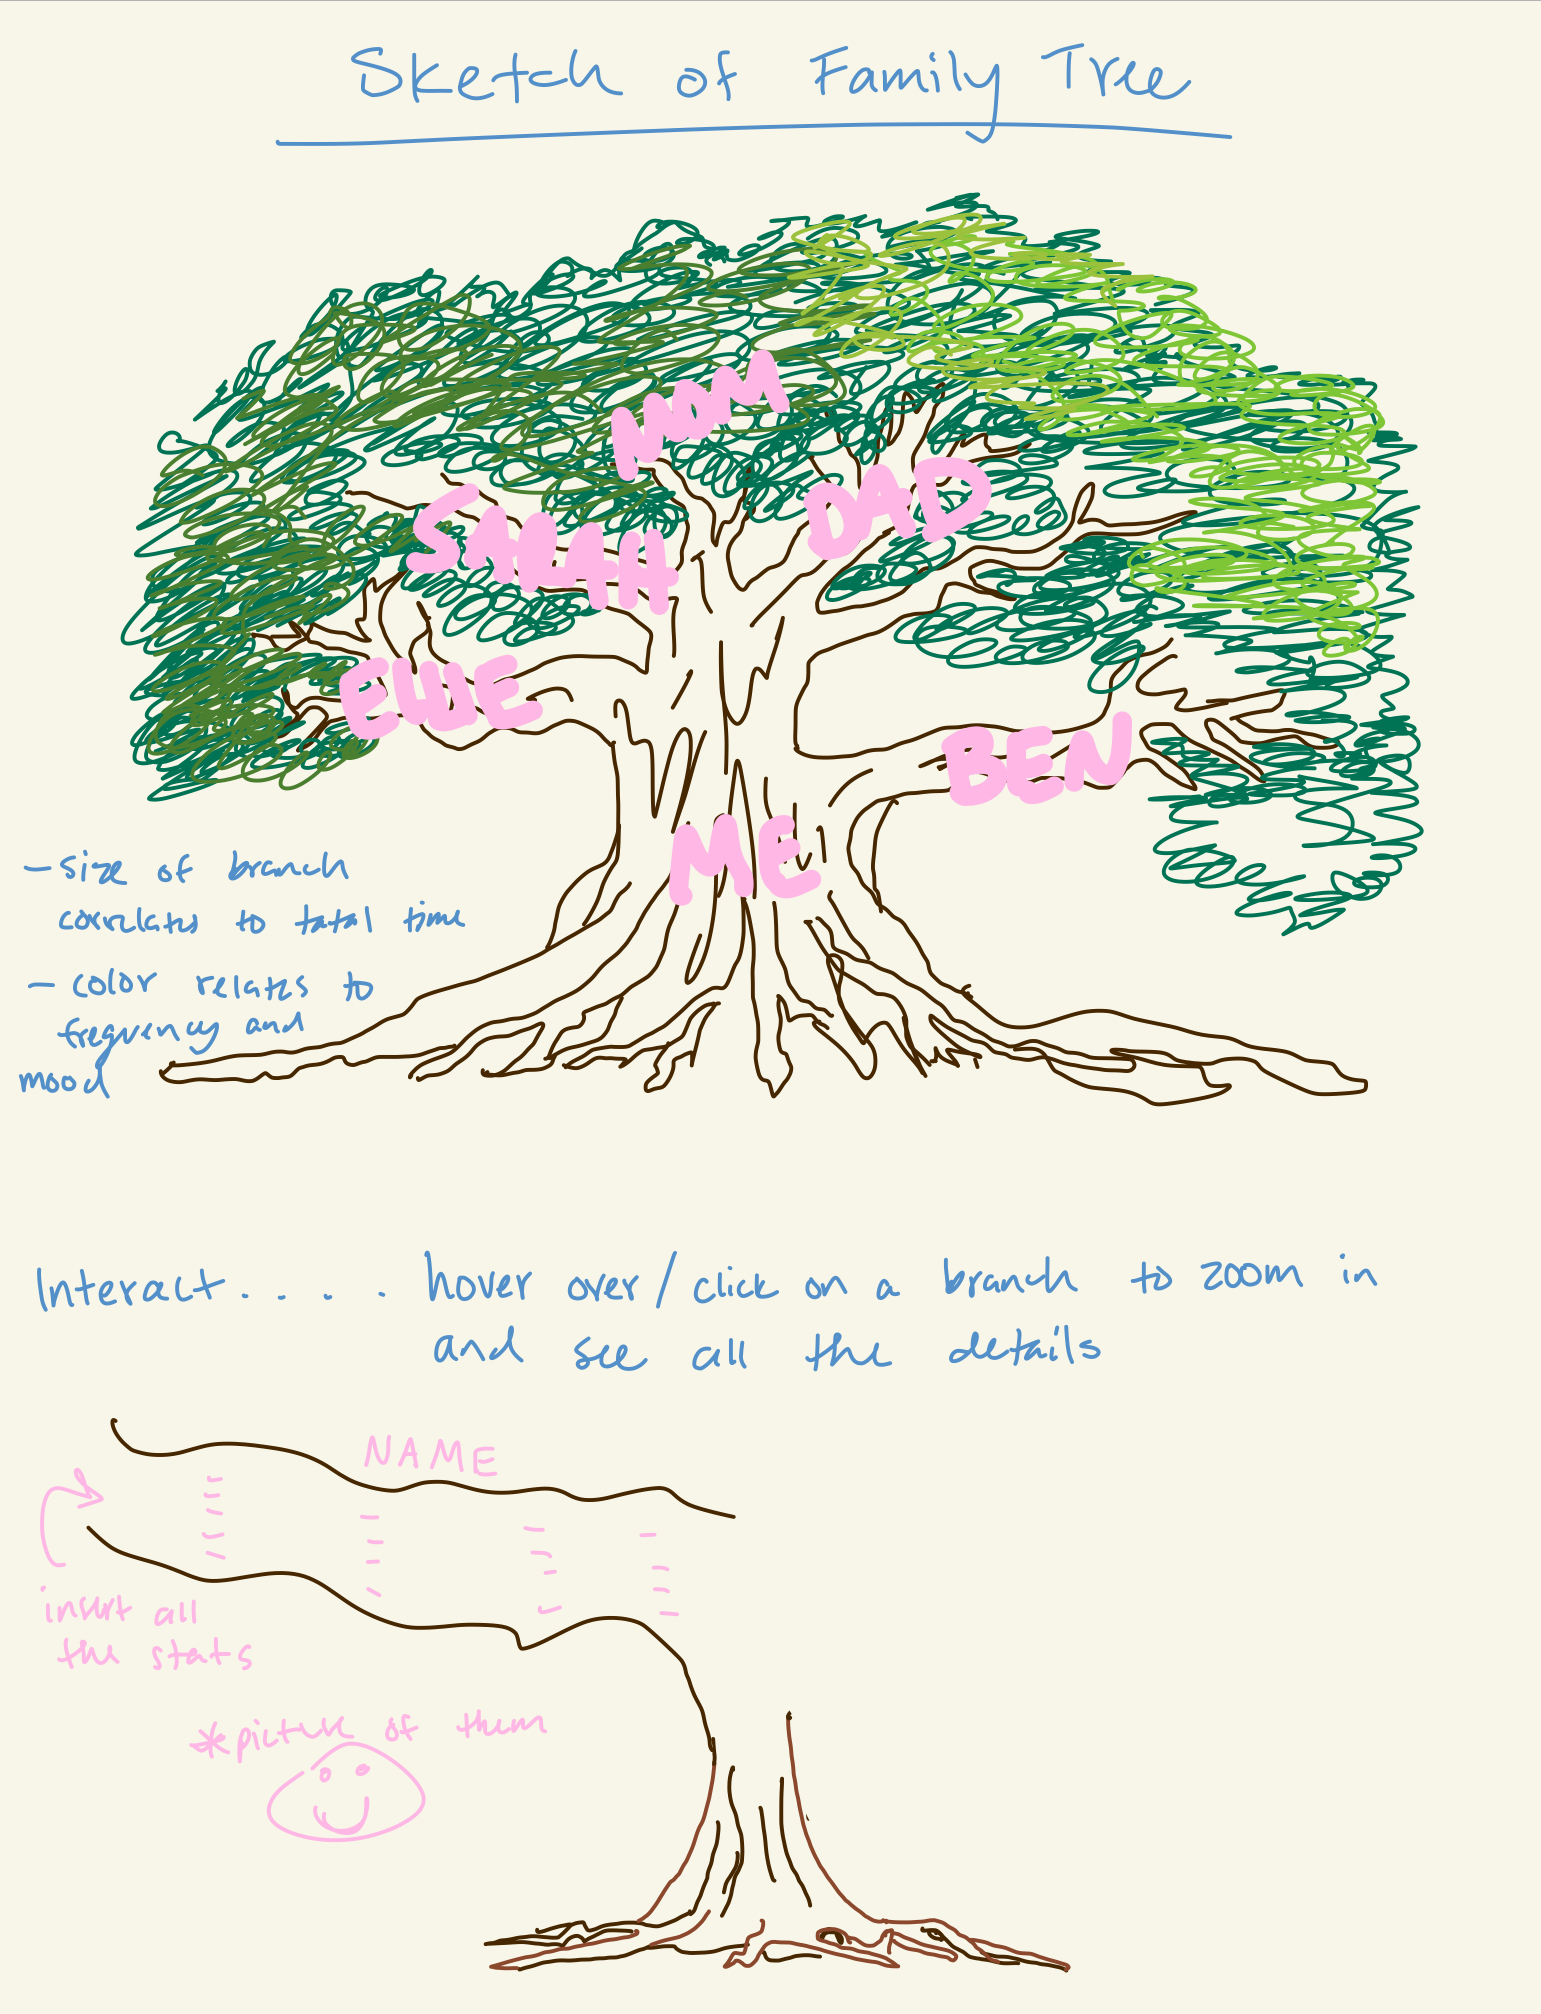 Sketch of Family Tree
MOM
DAD
SARAH
ELLIE
BEN
ME
- size of branch
correlates to total time
- color relates to
frequency and
mood
Interact . . . . hover over/click on a branch to zoom in
and see all the details
NAME
insert all
the stats
*picture of them